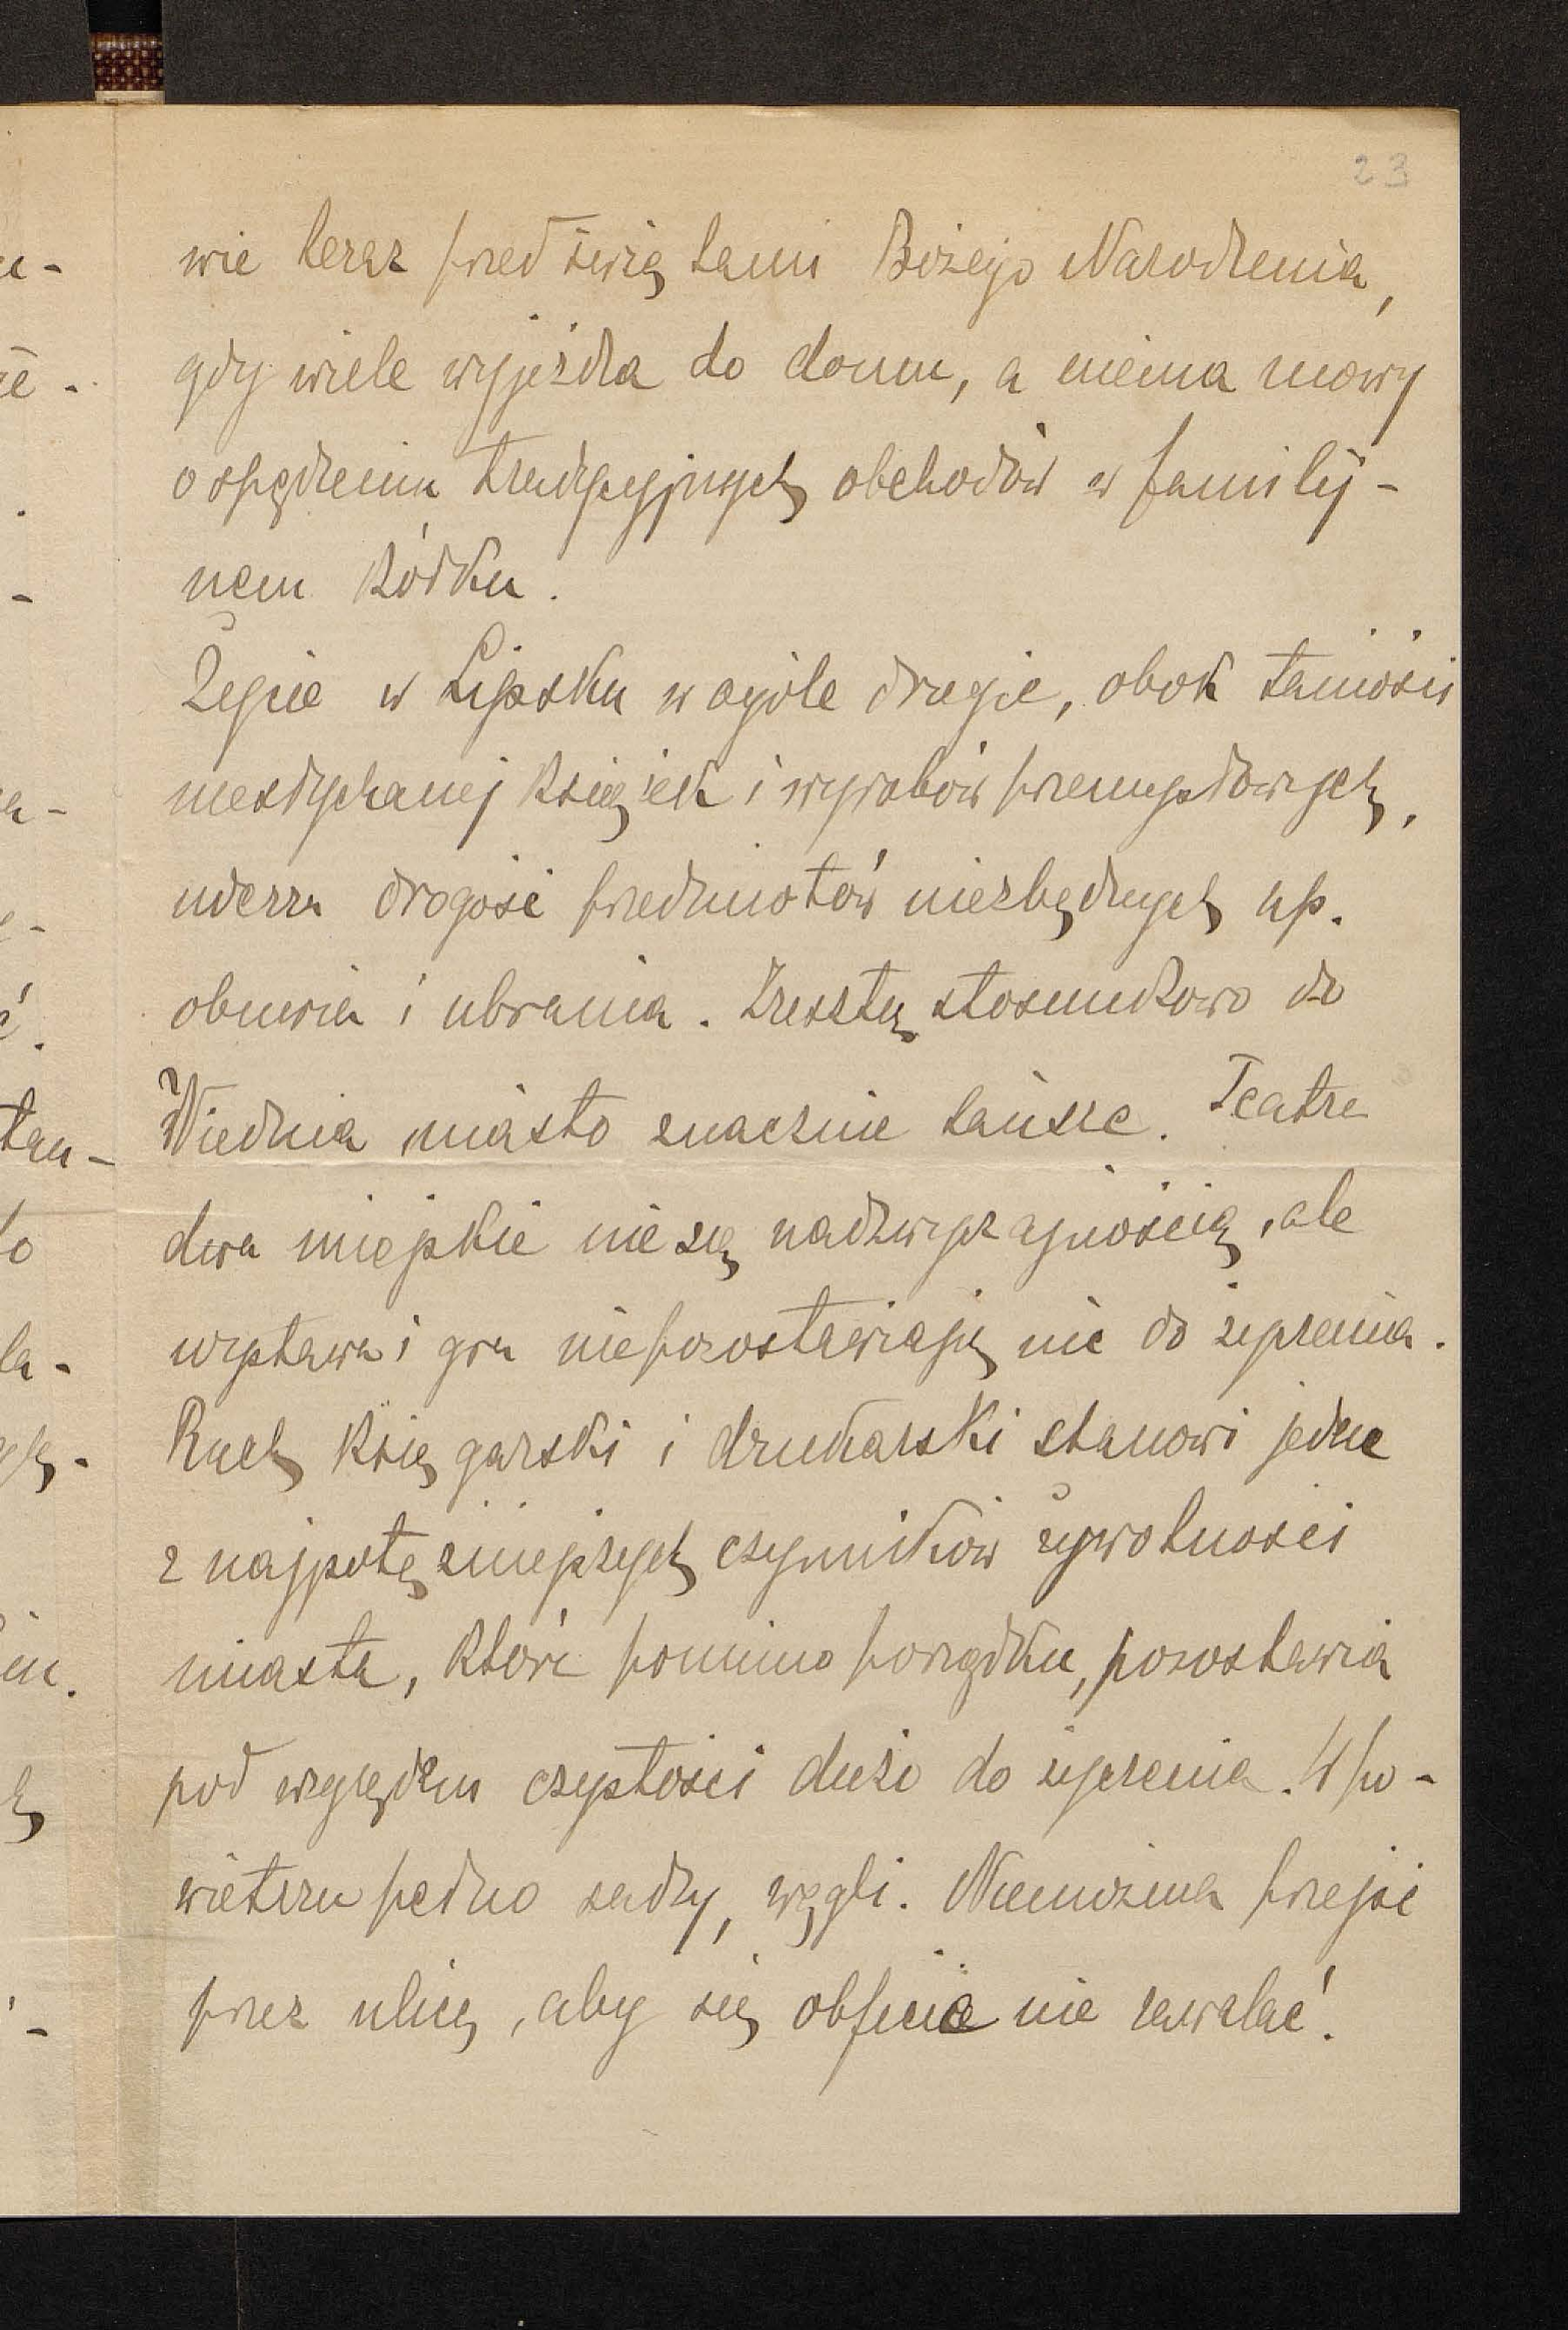 23
wie teraz przed świętami Bożego Narodzenia,
gdy wiele wyjeżdża do domu, a niema mowy
o spędzeniu tradycyjnych obchodów w familij-
nem kółku.
Życie w Lipsku w ogóle drogie, obok taniości
niesłychanej książek i wyrobów przemysłowych,
uderza drogość przedmiotów niezbędnych np.
obuwia i ubrania. Zresztą stosunkowo do
Wiednia miasto znacznie tańsze. Teatra
dwa miejskie nie są nadzwyczajnością, ale
wystawa i gra nie pozostawiają nic do życzenia.
Ruch księgarski i drukarski stanowi jedne
z najpotężniejszych czynników żywotności
miasta, które pomimo porządku, pozostawia
pod względem czystości dużo do życzenia. W po-
wietrzu pełno sadzy, węgli. Niemożna przejść
przez ulicę, aby się obficie nie zawalać.
u-
że-
.
-
a-
ę-
ć.
tan-
ło
la-
ą-
in.
ę
-